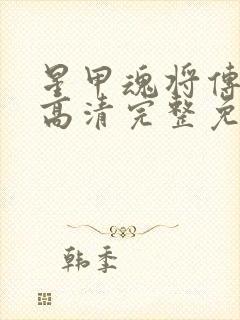 星甲魂将傳
高清完整免
韩季